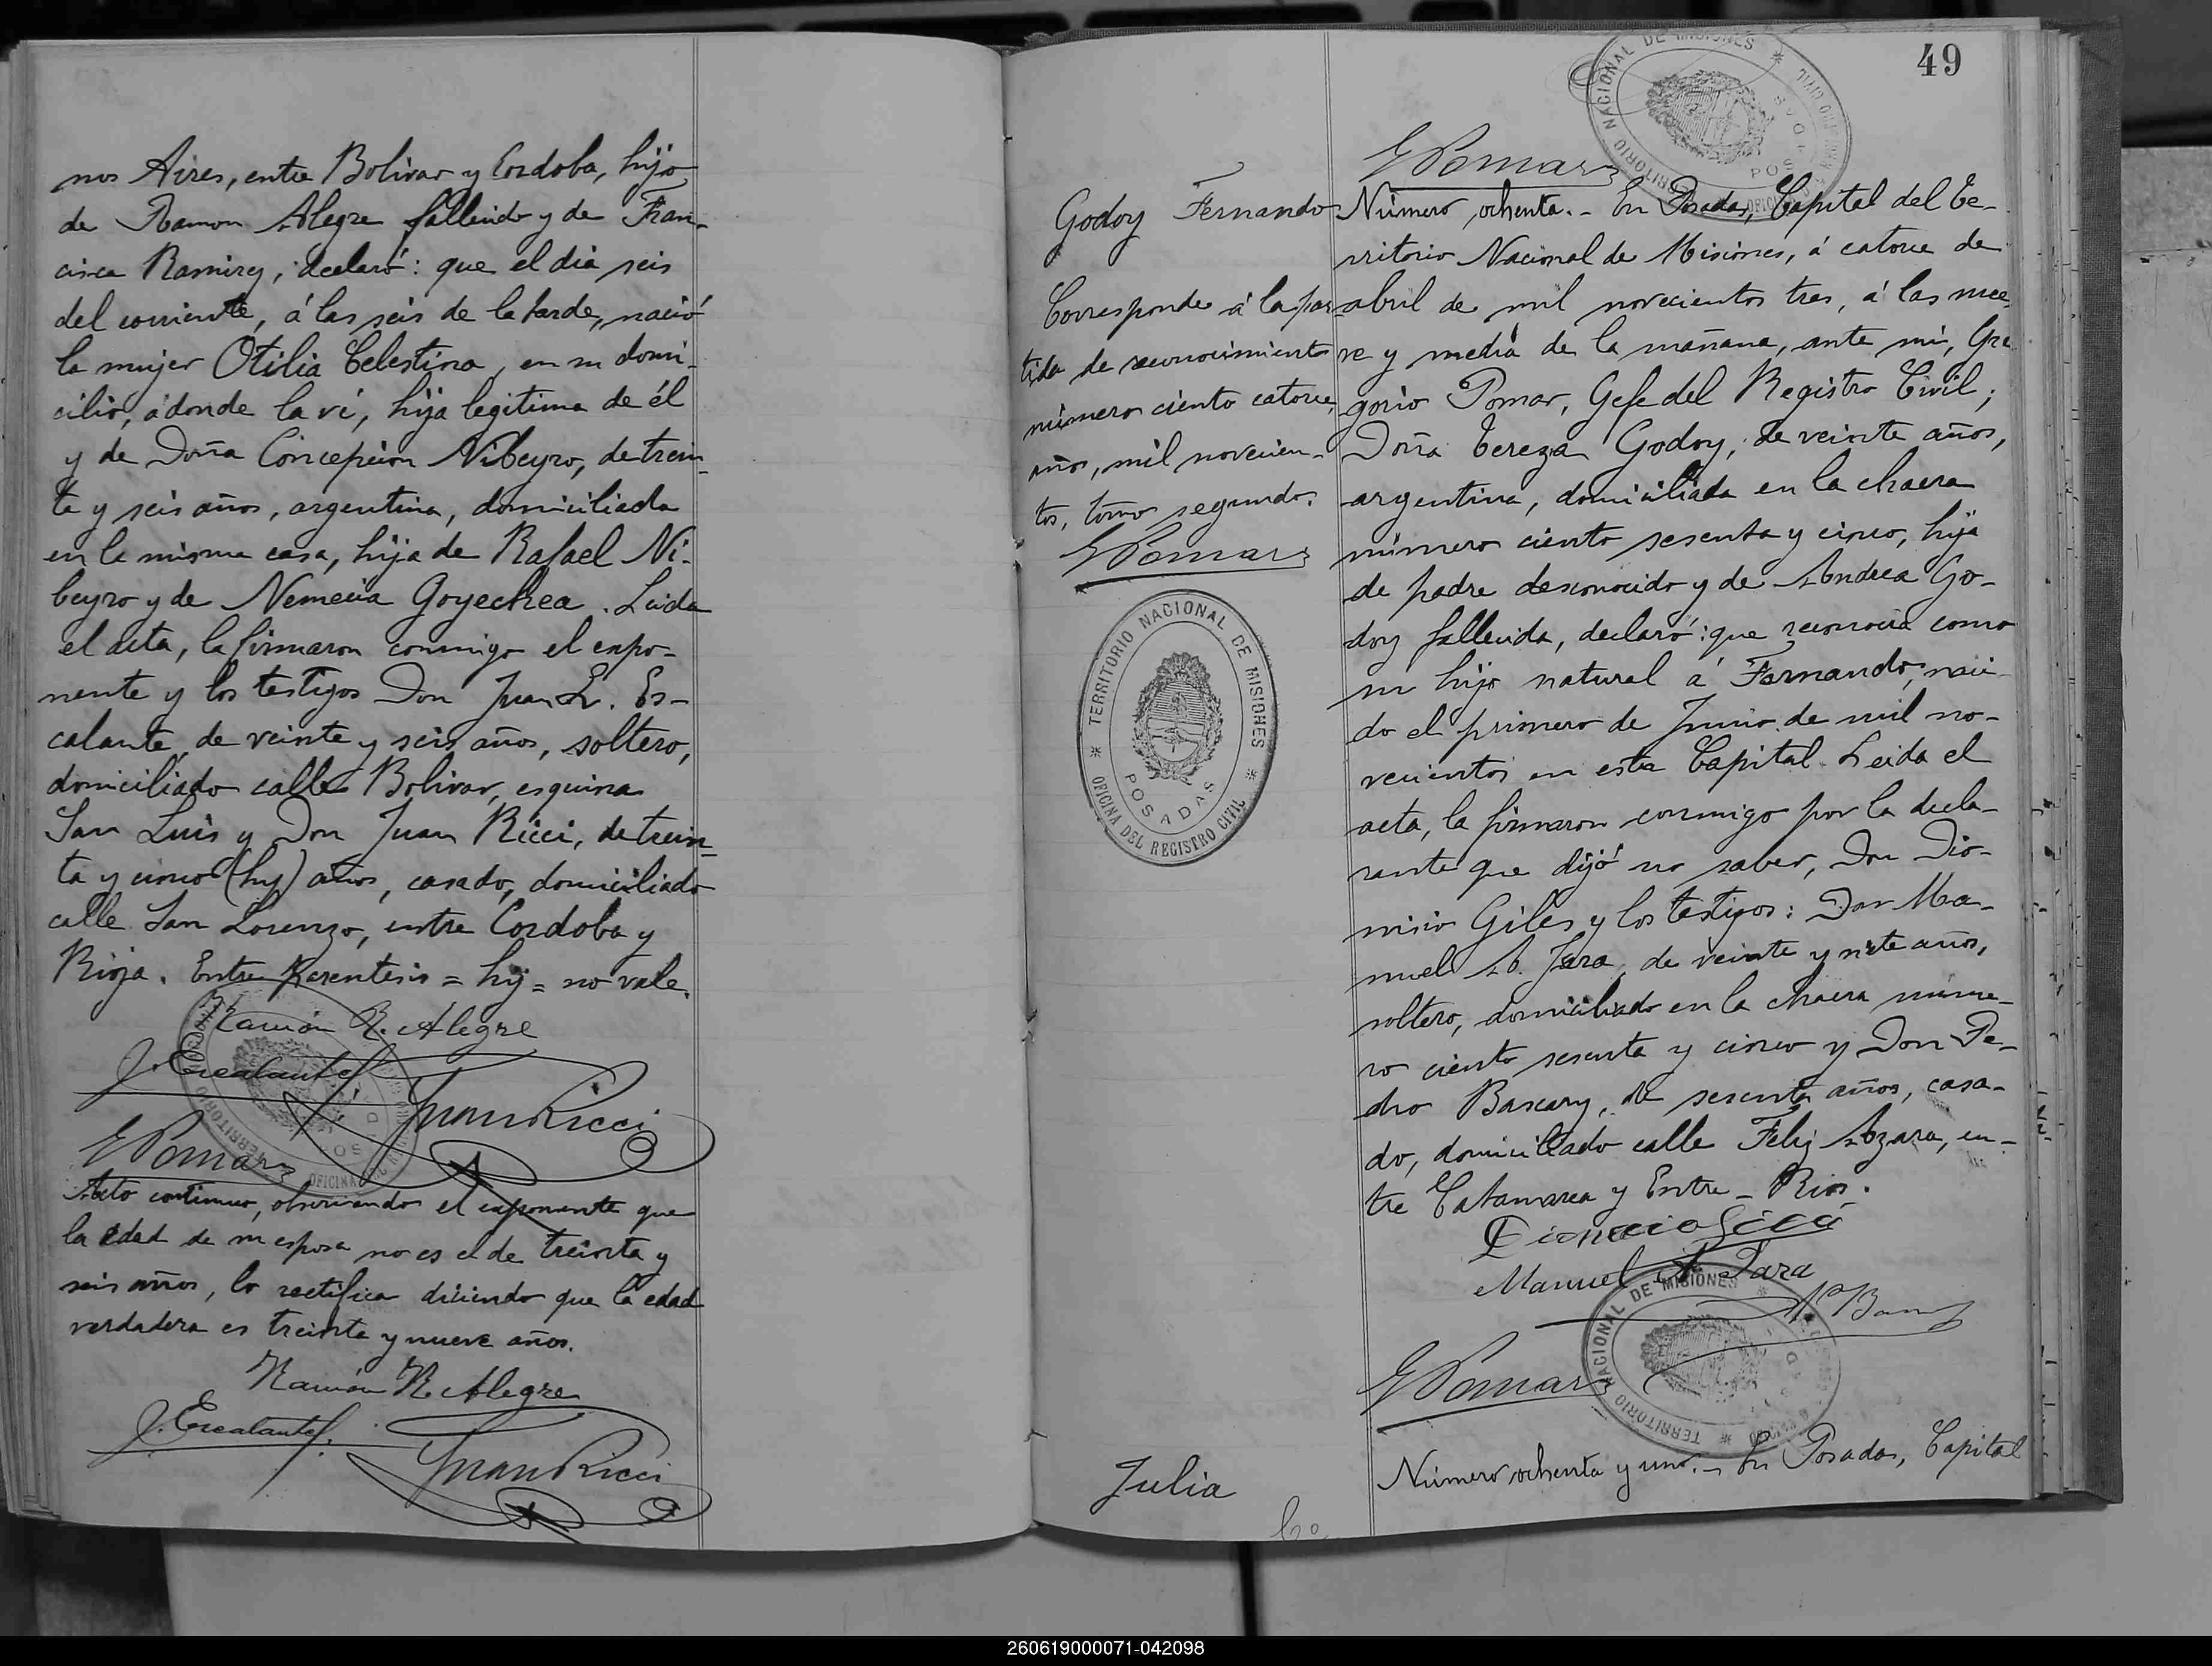 nos Aires, entre Bolivar y Cordoba, hijo
de Ramon Alegre fallecido y de Fran-
cisca Ramirez, declaró: que el dia seis
del corriente, á las seis de la tarde, nació
la mujer Otilia Celestina, en su domi-
cilio, adonde la ví, hija legitima de él
y de Doña Concepcion Nibeyro, de trein-
ta y seis años, argentina, domiciliada
en la misma casa, hija de Rafael Ni-
beyro y de Nemecia Goyechea. Leida
el acta, la firmaron conmigo el expo-
nente y los testigos Don Juan L. Es-
calante, de veinte y seis años, soltero,
domiciliado calle Bolivar, esquina
San Luis y Don Juan Ricci, de trein-
ta y cinco (hij) años, casado, domiciliado
calle San Lorenzo, entre Cordoba y
Rioja. Entre parentesis = hij = no vale.
Ramón R. Alegre
J. Escalante
Juan Ricci
G Pomar
Acto continuo, observando el exponente que
la edad de su esposa no es el de treinta y
seis años, lo rectifica diciendo que la edad
verdadera es treinta y nueve años.
Ramón R. Alegre
J. Escalante
Juan Ricci
49
TERRITORIO NACIONAL DE MISIONES
POSADAS
G Pomar
Godoy Fernando
Corresponde á la par-
tida de reconocimiento
número ciento catorce,
año, mil novecien-
tos, tomo segundo.
G Pomar
TERRITORIO NACIONAL DE MISIONES
POSADAS
OFICINA DEL REGISTRO CIVIL
Número ochenta.- En Posadas, Capital del Te-
rritorio Nacional de Misiones, á catorce de
abril de mil novecientos tres, á las nue-
ve y media de la mañana, ante mí, Gre-
gorio Pomar, Gefe del Registro Civil;
Doña Tereza Godoy, de veinte años,
argentina, domiciliada en la chacra
número ciento sesenta y cinco, hija
de padre desconocido y de Andrea Go-
doy fallecida, declaró: que reconocia como
su hijo natural á Fernando, naci-
do el primero de Junio de mil no-
vecientos en esta Capital. Leida el
acta, la firmaron conmigo por la decla-
rante que dijó no saber, Don Dio-
nisio Giles y los testigos: Don Ma-
nuel A. Jara, de veinte y siete años,
soltero, domiciliado en la chacra núme-
ro ciento sesenta y cinco y Don Pe-
dro Bascary, de sesenta años, casa-
do, domiciliado calle Feliz Azara, en-
tre Catamarca y Entre-Rios.
Manuel A. Jara
G Pomar
Julia
Número ochenta y uno.- En Posadas, Capital
260619000071-042098